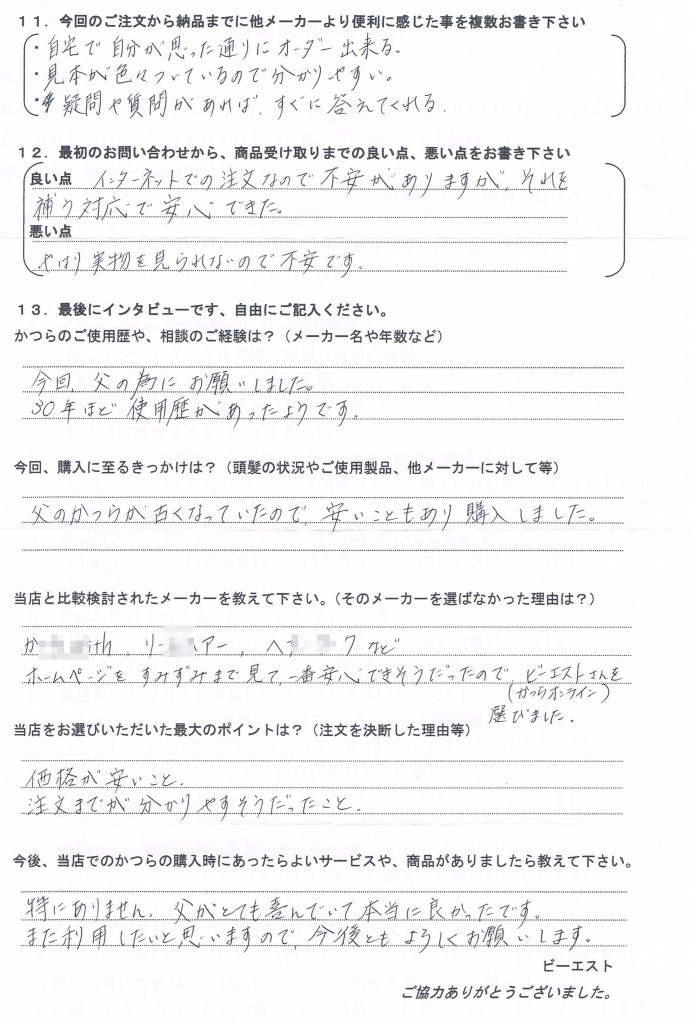 11．今回のご注文から納品までに他メーカーより便利に感じた事を複数お書き下さい
・自宅で自分が思った通りにオーダー出来る。
・見本が色々ついているので分かりやすい。
・疑問や質問があれば、すぐに答えてくれる。
12．最初のお問い合わせから、商品受け取りまでの良い点、悪い点をお書き下さい
良い点 インターネットでの注文なので不安がありますが、それを
補う対応で安心できた。
悪い点
やはり実物を見られないので不安です。
13．最後にインタビューです、自由にご記入ください。
かつらのご使用歴や、相談のご経験は？（メーカー名や年数など）
今回、父の為にお願いしました。
30年ほど使用歴があったようです。
今回、購入に至るきっかけは？（頭髪の状況やご使用製品、他メーカーに対して等）
父のかつらが古くなっていたので、安いこともあり購入しました。
当店と比較検討されたメーカーを教えて下さい。（そのメーカーを選ばなかった理由は？）
か ith、リー アー、ヘ クなど
ホームページをすみずみまで見て一番安心できそうだったので、ビーエストさんを
（かつらオンライン）
選びました。
当店をお選びいただいた最大のポイントは？（注文を決断した理由等）
価格が安いこと。
注文までが分かりやすそうだったこと。
今後、当店でのかつらの購入時にあったらよいサービスや、商品がありましたら教えて下さい。
特にありません。父がとても喜んでいて本当に良かったです。
また利用したいと思いますので、今後ともよろしくお願いします。
ビーエスト
ご協力ありがとうございました。